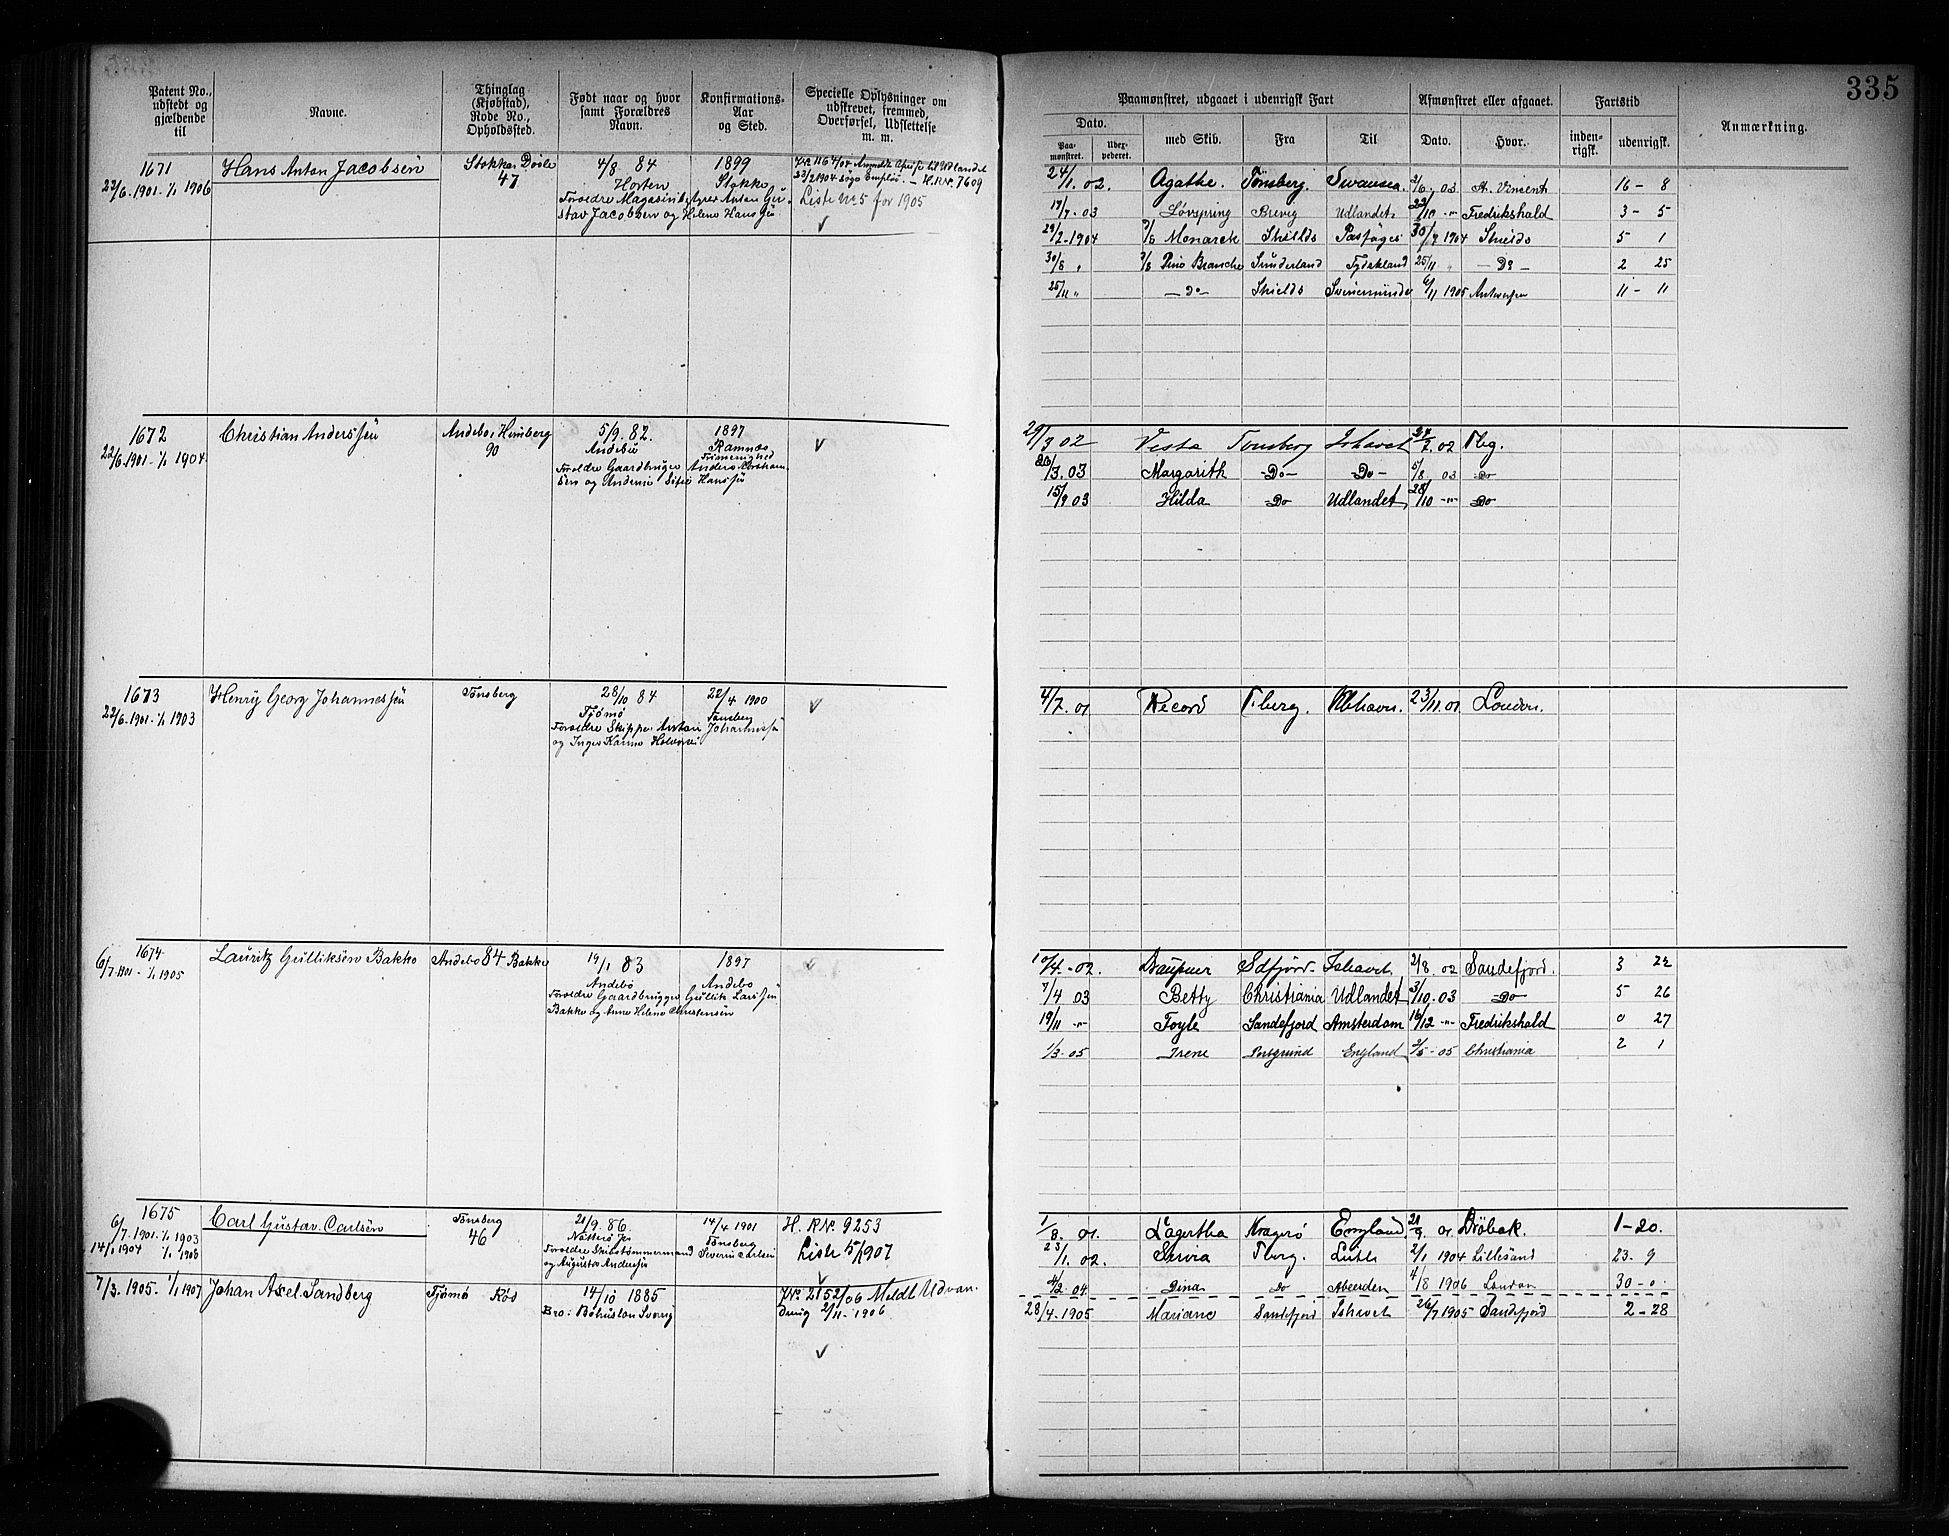 335
Patent No., udstedt og gjældende til
Navne.
Thinglag (Kjøbstad), Rode No., Opholdssted.
Født naar og hvor samt Forældres Navn.
Konfirmations-Aar og Sted.
Specielle Oplysninger om udskrevet, fremmed, Overførsel, Udslettelse m. m.
Paamønstret, udgaaet i udenrigsk Fart
Afmønstret eller afgaaet.
Fartstid
Anmærkning.
Dato.
Paamønstret.
med Skib.
Fra
Til
Dato.
Hvor.
indenrigsk.
udenrigsk.
1671 Hans Anton Jacobsen Stokke 4/8 84 1899
22/6 1901 - 1/1 1906 47 Horten Stokke H.R.Nr. 7609
Forældre Magasinbestyrer Anton Gu- Liste No 5 for 1905
stav Jacobsen og Helene Hanssen
24/1 02. Agathe. Tönsberg. Swansea. 03 St. Vincent 16 - 8
17/7 - 03 Brevig Udlandet 22/10 -"- Fredrikshald 3 - 5
29/2 - 1904 Monarch Shields 1904 Shields 5 1
30/8 " Sunderland Tydskland 25/11 " - Do - 2 25
25/11 " - Do - Shields Svinemünde 6/11 1905 Antwerpen 11 - 11
1672 Christian Anderssen Andebo, Himberg 5/9. 82. 1897
22/6 1901 - 1/1 1904 90 Andebu Ramnæs
Forældre Gaardbruger Anders
sen og Hanssen
29/3 02 Vesta Tönsberg Ishavet 02 Tbg.
3. 03 Margarith - Do - - Do - 5/8 03 - Do
15/9 03 Hilda - Do Udlandet 28/10 -"- - Do
1673 Henry Georg Johannessen Tönsberg 28/10 84 22/4 1900
22/6 1901 - 1/1 1903 Tjömö Tönsberg
Forældre Skipper Anton Johannessen
og Inger
4/7. 01 Record Tberg. Kbhavn. 23/11. 01. London.
1674 Lauritz Gulliksen Bakke Andebo 84 Bakke 19/1 83 1897
6/7 1901 - 1/1 1905 Andebo Andebo
Forældre Gaardbruger Gullik Larssen
Bakke og Anne Helene Christensen
10/4. - 02. Draupner Sdfjord. Ishavet 2/8 02 Sandefjord. 3 22
7/4 03 Betty Christiania Udlandet 3/10. 03 - Do 5 26
19/11 -"- Foyle Sandefjord Amsterdam 16/12 -"- Fredrikshald 0 27
1/3. 05 Irene Porsgrund England 2/5 - 05 Christiania 2 1
1675 Carl Gustav. Carlsen Tönsberg 21/9. 86. 14/4 1901 H. RNr. 9253
6/7. 1901. 1/1 1903 46 Nötterö Tönsberg Liste 5/1907
14/1 1904 1/1 1906 Forældre Skibstömmermand Severin Carlsen
og Augusta Andersen
1/8. 01. Lagertha Kragerö England 21/9 01 Dröbak. 1 - 20.
23/1. 02. Tberg. 2/1 1904 Lillesand 23. 9
2. 04 Dina Do Aberdeen 4/8 1906 London 30 - 0
7/3. 1905. 1/1 1907 Johan Axel Sandberg Tjömö Röd 14/10 1885 Meldt Udvan-
Bro: Bohuslän Sverig dring 2/11 - 1906
28/4 - 1905 Mariane Sandefjord Ishavet 26/7 1905 Sandefjord 2 - 28